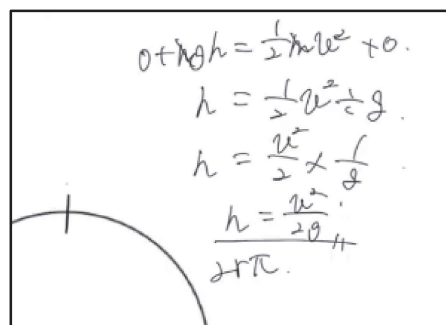 0+mgh = 1/2 mv² + 0.
h = 1/2 v² ÷ g.
h = v²/2 × 1/g
h = v²/2g "
2rπ.